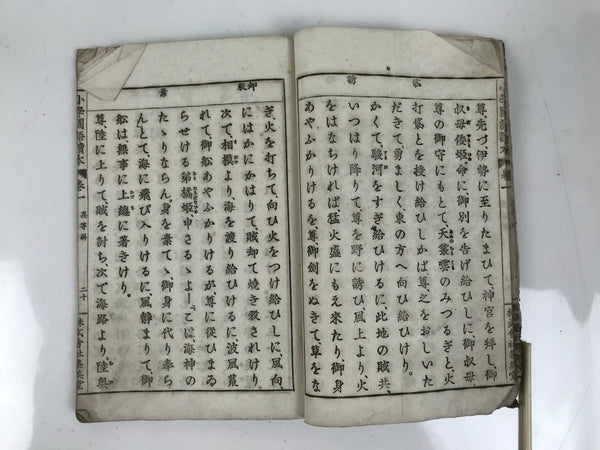 袋 誘
尊、先づ、伊勢に至りたまひて、神宮を拜し、御
叔母倭姫命に、御別を告げ給ひしに、御叔母
尊の御守にもとて、天叢雲のみつるぎと、火
打袋とを授け給ひしかば、尊之をおしいた
だきて、勇ましく、東の方へ向ひ給ひけり。
かくて、駿河をすぎ給ひけるに、此地の賊共、
いつはり降りて、尊を野に誘ひ、風上より火
をはなちければ、猛火盛にもえ來たり、御身
あやふかりけるを、尊、御劍をぬきて、草をな
却 殺 棄
ぎ、火を打ちて、向ひ火をつけ給ひしに、風向
にはかにかはりて、賊却て燒き殺されけり。
次て、相模より、海を渡り給ひけるに、波風荒
れて、御船あやふかりけるが、尊に從ひまゐ
らせける弟橘姫申さるゝよー、こは、海神の
たゝりならん。身を棄てゝ、御身に代り奉ら
んとて、海に飛び入りけるに、風靜まりて、御
船は無事に上總に著きけり。
尊、陸に上りて、賊を討ち、次て海路より、陸奥
小學國語讀本 卷一 高等科 二十 株式會社集英堂